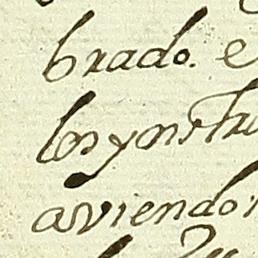 brado. e
los ynstru
aviendo